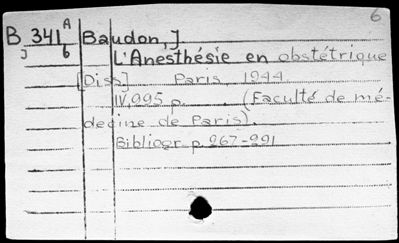 6
B 341 A Baudon, J.
J 6 L'Anesthésie en obstétrique
[Diss] Paris, 1944
IV, 995 p. (Faculté de mé-
decine de Paris).
Bibliogr. p. 267-291